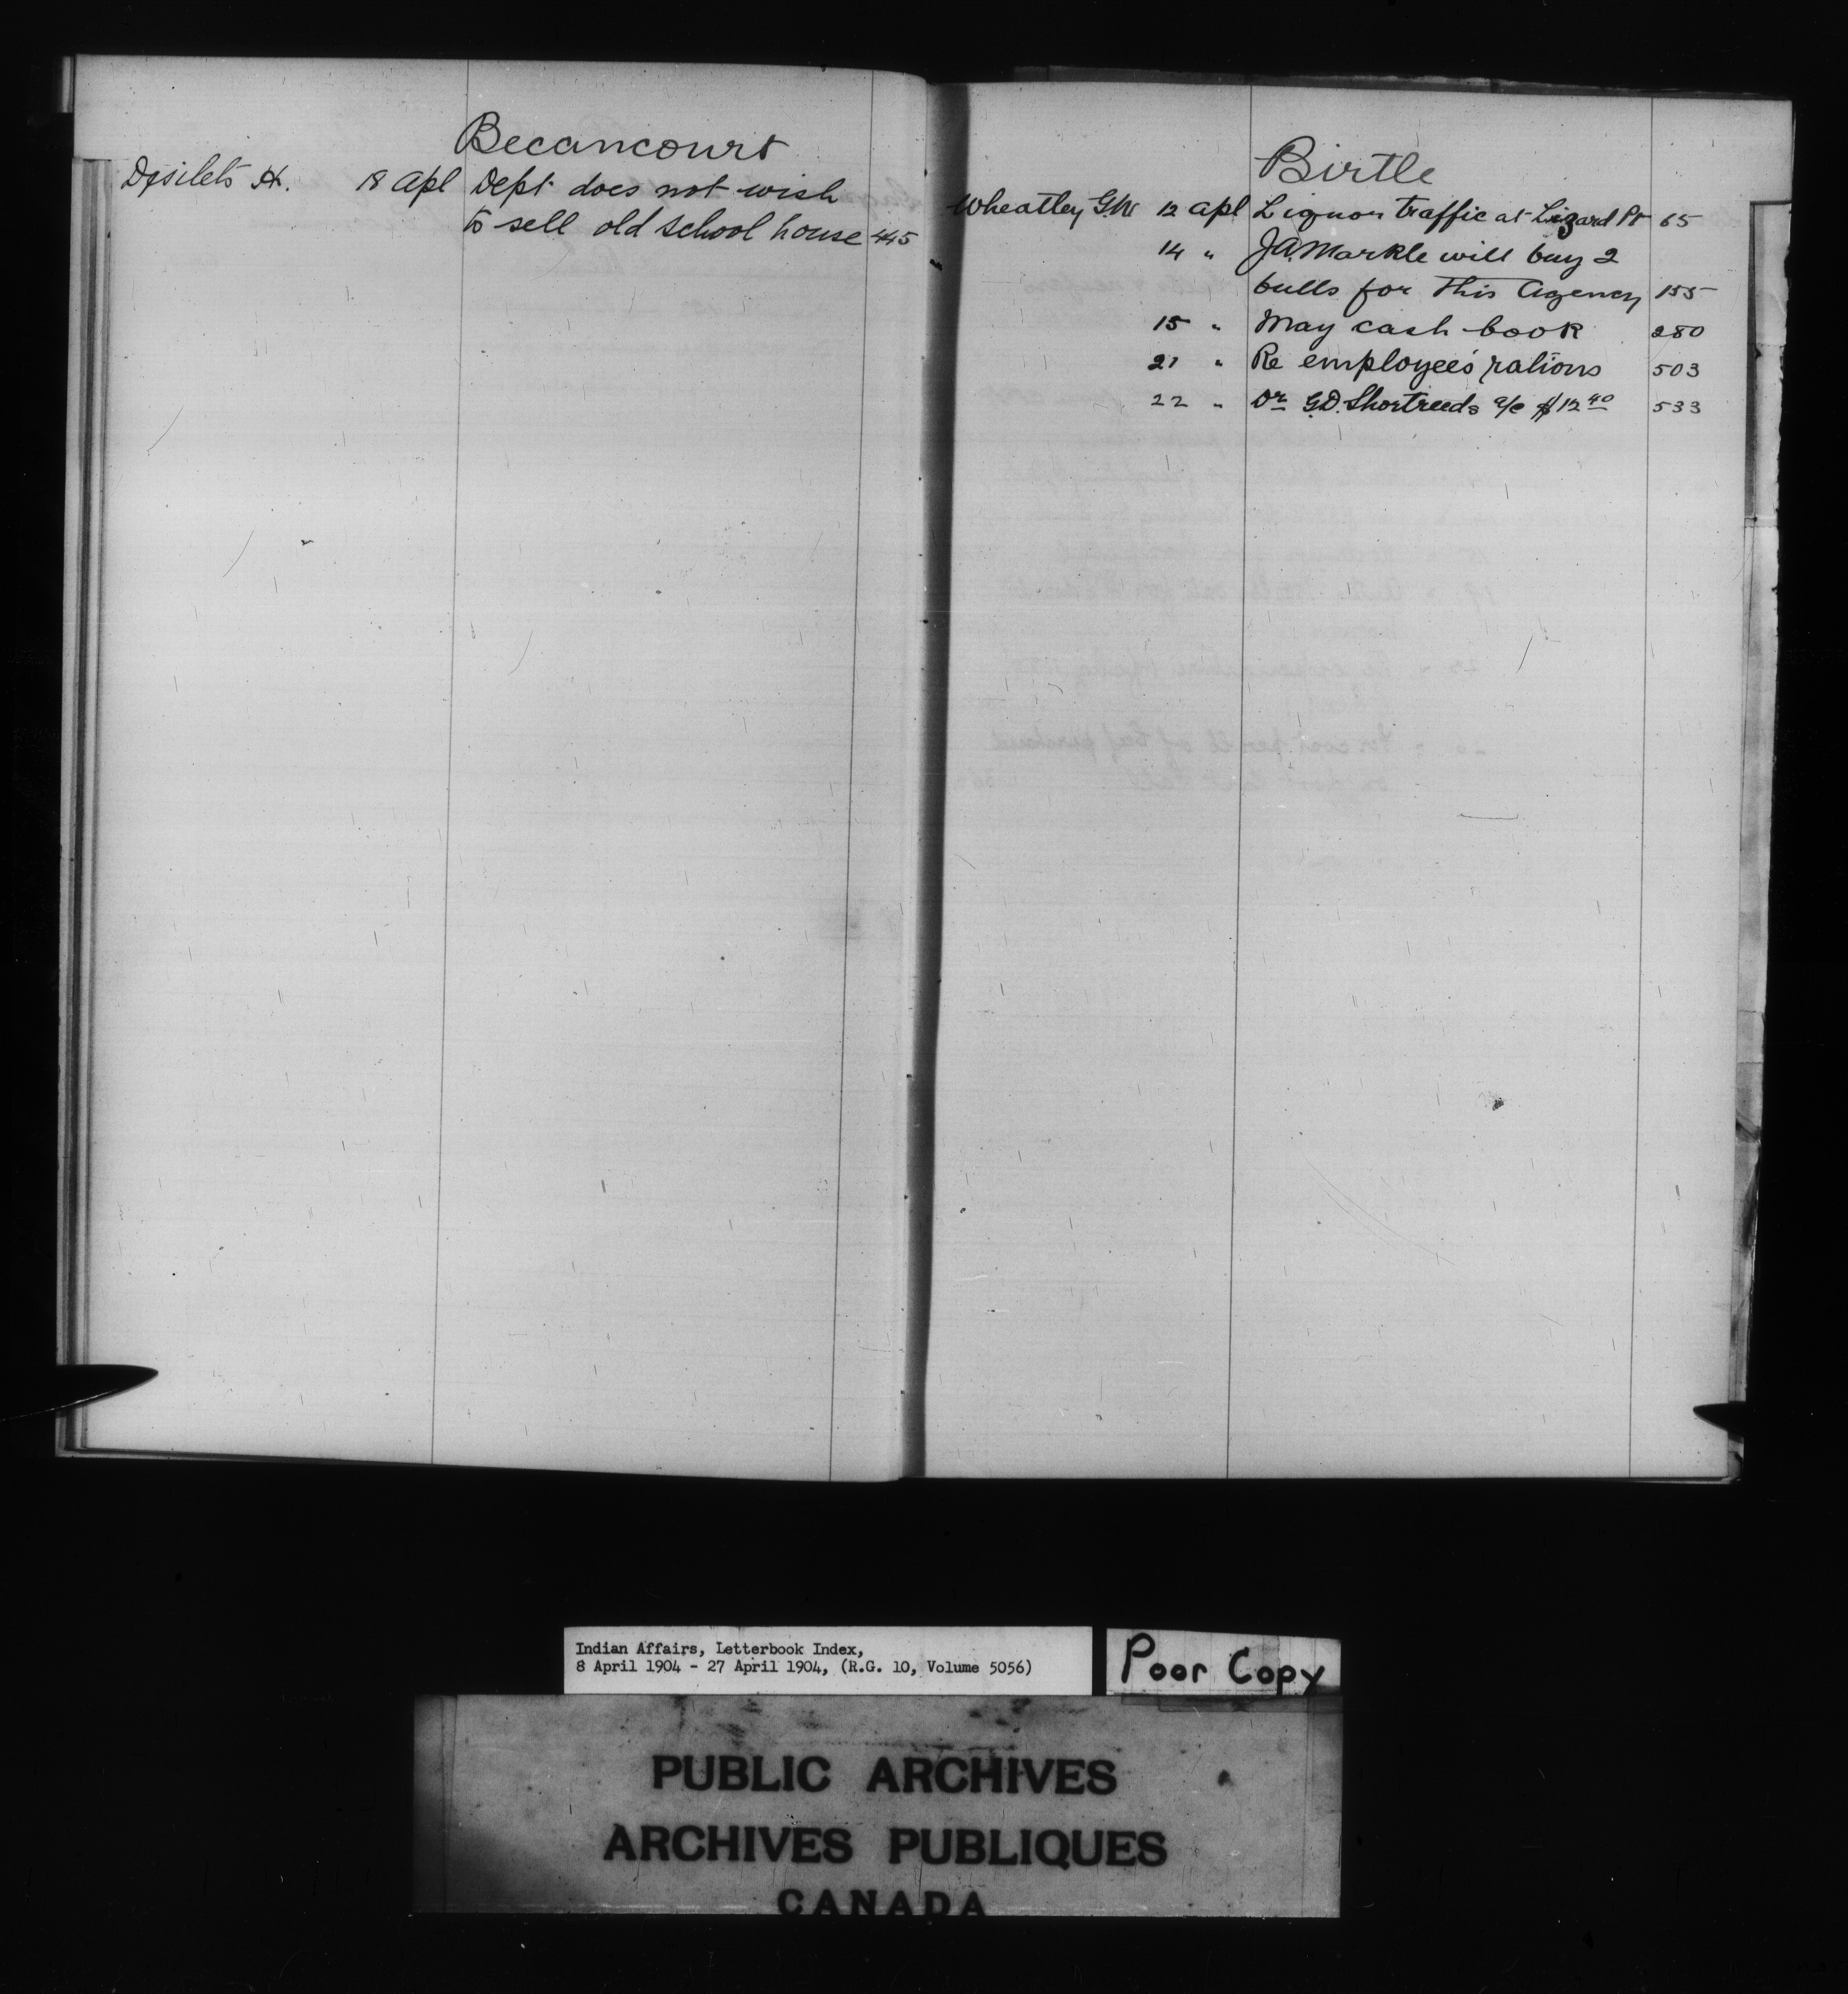 Becancourt
Desilets H. 18 apl Dept does not wish
to sell old school house 445
Birtle
Wheatley G.W 12 apl Liquor traffic at Lizard Pt 65
14 " J.A. Markle will buy 2
bulls for this Agency 155
15 " May cash book 280
21 " Re employees' rations 503
22 " Dr G.D. Shortreeds a/c $12 40 533
Indian Affairs, Letterbook Index,
8 April 1904 - 27 April 1904, (R.G. 10, Volume 5056)
Poor Copy
PUBLIC ARCHIVES
ARCHIVES PUBLIQUES
CANADA